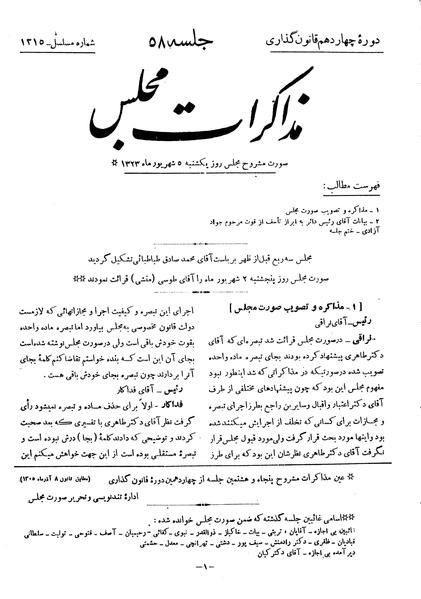 دورهٔ چهاردهم قانون گذاری
جلسه ۵۸
شماره مسلسل - ۱۳۱۵
مذاکرات مجلس
صورت مشروح مجلس روز یکشنبه ۵ شهریور ماه ۱۳۲۳ *
فهرست مطالب:
۱ - مذاکره و تصویب صورت مجلس
۲ - بیانات آقای رئیس دائر به ابراز تأسف از فوت مرحوم جواد
آزادی - ختم جلسه
مجلس سه ربع قبل از ظهر بریاست آقای محمد صادق طباطبائی تشکیل گردید
صورت مجلس روز پنجشنبه ۲ شهریور ماه را آقای طوسی (منشی) قرائت نمودند **
[ ۱ - مذاکره و تصویب صورت مجلس ]
رئیس - آقای نراقی
نراقی - در صورت مجلس قرائت شد تبصره‌ای که آقای
دکتر طاهری پیشنهاد کرده بودند بجای تبصره ماده واحده
تصویب شده در صورتیکه در مذاکراتی که شد اینطور نبود
مفهوم مجلس این بود که چون پیشنهادهای مختلفی از طرف
آقای دکتر اعتبار و اقبال و سایرین راجع بطرز اجرای تبصره
و مجازات برای کسانی که تخلف از اجرایش میکنند شده
بود و اینها مورد بحث قرار گرفت ولی مورد قبول مجلس قرار
نگرفت آقای دکتر طاهری نظرشان این بود که برای طرز
اجرای این تبصره و کیفیت اجرا و مجازاتهائی که لازمست
دولت قانون مخصوصی به مجلس بیاورد اما تبصره ماده واحده
بقوت خودش باقی است ولی در صورت مجلس نوشته شده است
بجای آن این است که بنده خواستم تقاضا کنم کلمهٔ بجای
آنرا بردارند چون تبصره بجای خودش باقی هست.
رئیس - آقای فداکار
فداکار - اولاً برای حذف ماده و تبصره نمیشود رأی
گرفت نظر آقای دکتر طاهری با تفسیری که بعد صحبت
کردند و توضیحی که دادند کلمهٔ (بجا) درش نبوده است و
تبصرهٔ مستقلی بوده است از این جهت خواهش میکنم این
* عین مذاکرات مشروح پنجاه و هشتمین جلسه از چهاردهمین دوره قانون گذاری
(مطابق قانون ۸ آذرماه ۱۳۰۵)
ادارهٔ تندنویسی و تحریر صورت مجلس
** اسامی غائبین جلسه گذشته که ضمن صورت مجلس خوانده شده:
غائبین بی اجازه - آقایان: تربتی - بیات - خاکباز - ذوالقدر - نبوی - کفائی - رحیمیان - آصف - فتوحی - تولیت - سلطانی
قبادیان - ظفری - دکتر رادمنش - سیف پور - دشتی - تهرانچی - معدل - حشمتی
دیر آمده بی اجازه - آقای دکتر کیان
-۱-